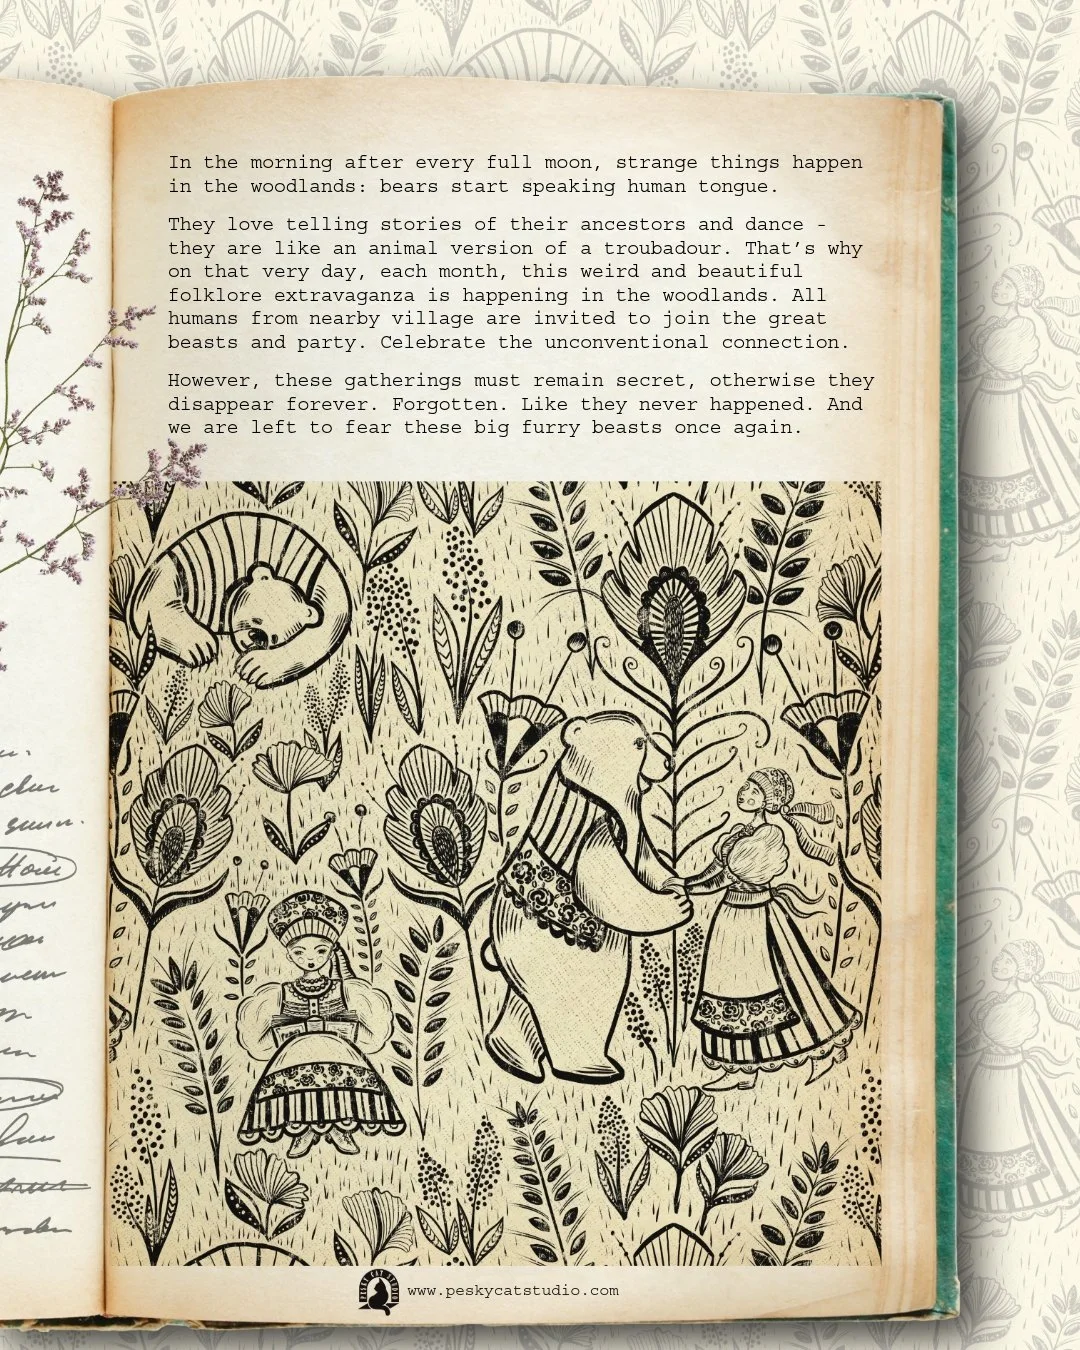 In the morning after every full moon, strange things happen
in the woodlands: bears start speaking human tongue.
They love telling stories of their ancestors and dance -
they are like an animal version of a troubadour. That’s why
on that very day, each month, this weird and beautiful
folklore extravaganza is happening in the woodlands. All
humans from nearby village are invited to join the great
beasts and party. Celebrate the unconventional connection.
However, these gatherings must remain secret, otherwise they
disappear forever. Forgotten. Like they never happened. And
we are left to fear these big furry beasts once again.
PESKY CAT STUDIO
www.peskycatstudio.com